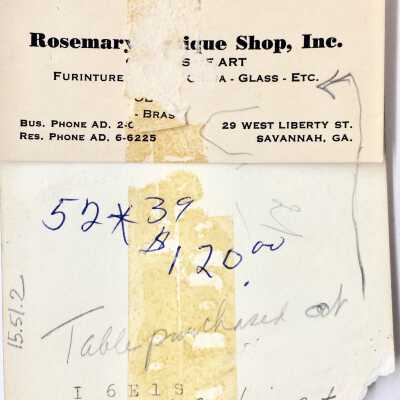 Rosemary tique Shop, Inc.
OF ART
FURINTURE - GLASS - ETC.
- BRAS
BUS. PHONE AD. 2-
RES. PHONE AD. 6-6225
29 WEST LIBERTY ST.
SAVANNAH, GA.
52 x 39
$120.00
Table purchased at
15.51.2
I 6E1S